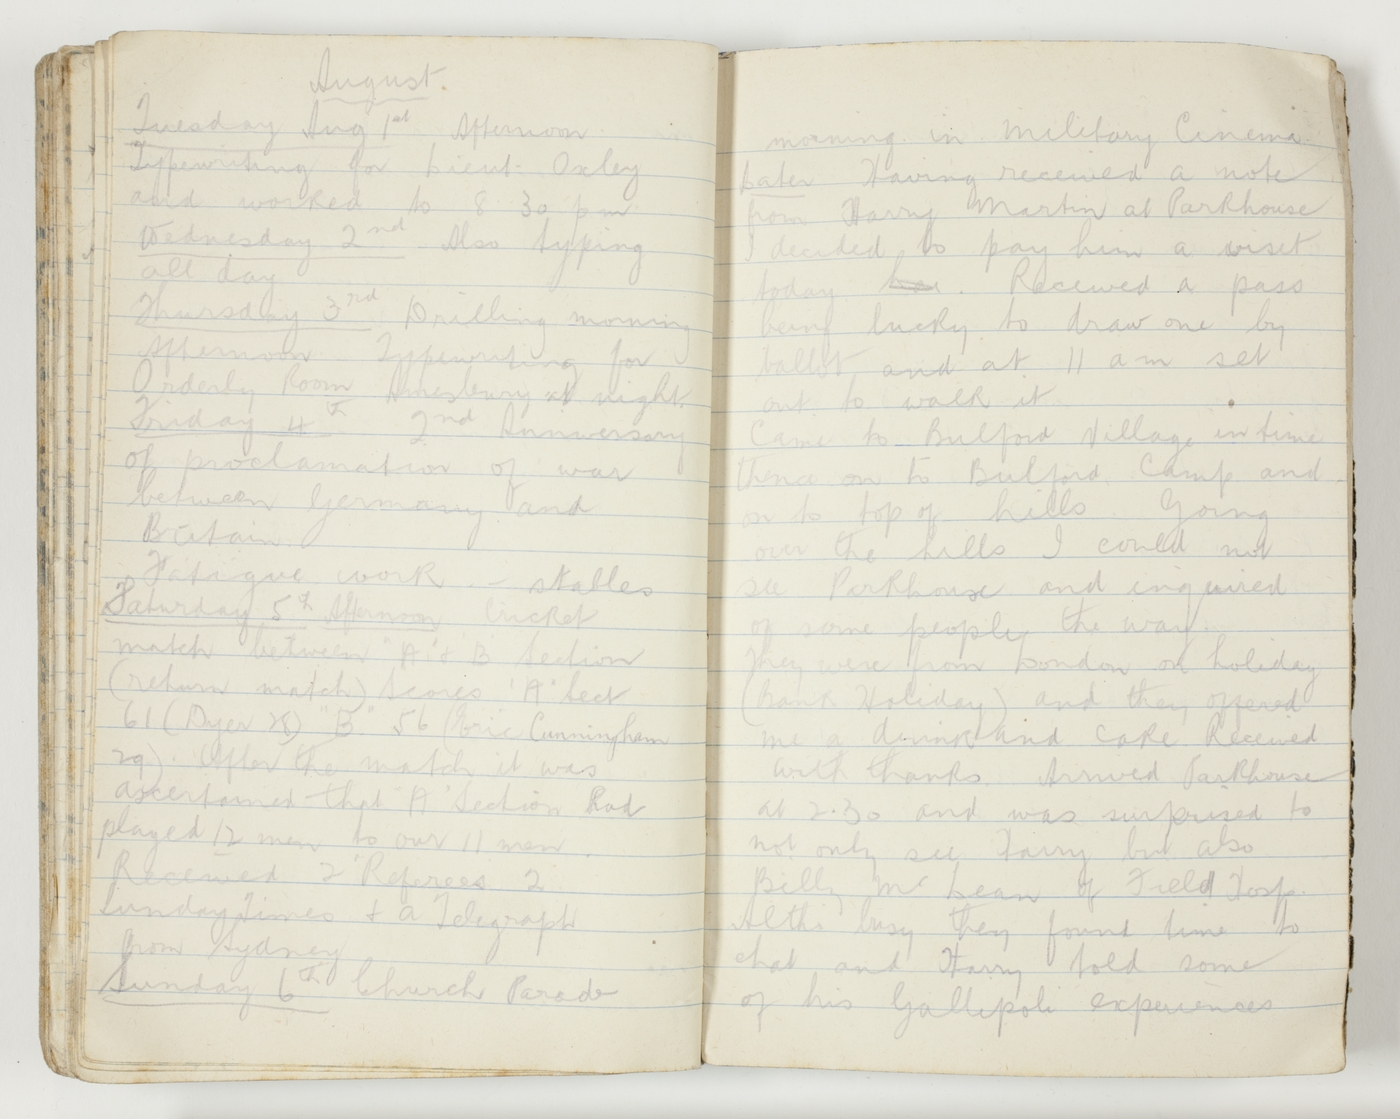 August
Tuesday Aug 1st Afternoon
Typewriting for Lieut. Oxley
and worked to 8 30 pm
Wednesday 2nd Also typing
all day
Thursday 3rd Drilling morning
Afternoon Typewriting for
Orderly Room Amesbury at night.
Friday 4th 2nd Anniversary
of proclamation of war
between Germany and
Britain.
Fatigue work - stables
Saturday 5th Afternoon Cricket
match between "A" & B Section
(return match) Scores 'A' Sect
61 (Dyer 28) "B" 56 (Eric Cunningham
29). After the match it was
ascertained that "A" Section had
played 12 men to our 11 men.
Received 2 Referees 2
Sunday Times & a Telegraph
from Sydney
Sunday 6th Church Parade
morning in Military Cinema.
Later Having received a note
from Harry Martin at Parkhouse
I decided to pay him a visit
today. Received a pass
being lucky to draw one by
ballot and at 11 am set
out to walk it
Came to Bulford Village in time
thence on to Bulford Camp and
on to top of hills. Going
over the hills I could not
see Parkhouse and inquired
of some people the way.
They were from London on holiday
(Bank Holiday) and they offered
me a drink and cake Received
with thanks. Arrived Parkhouse
at 2.30 and was surprised to
not only see Harry but also
Billy McLean of Field Hosp.
Altho busy they found time to
chat and Harry told some
of his Gallipoli experiences